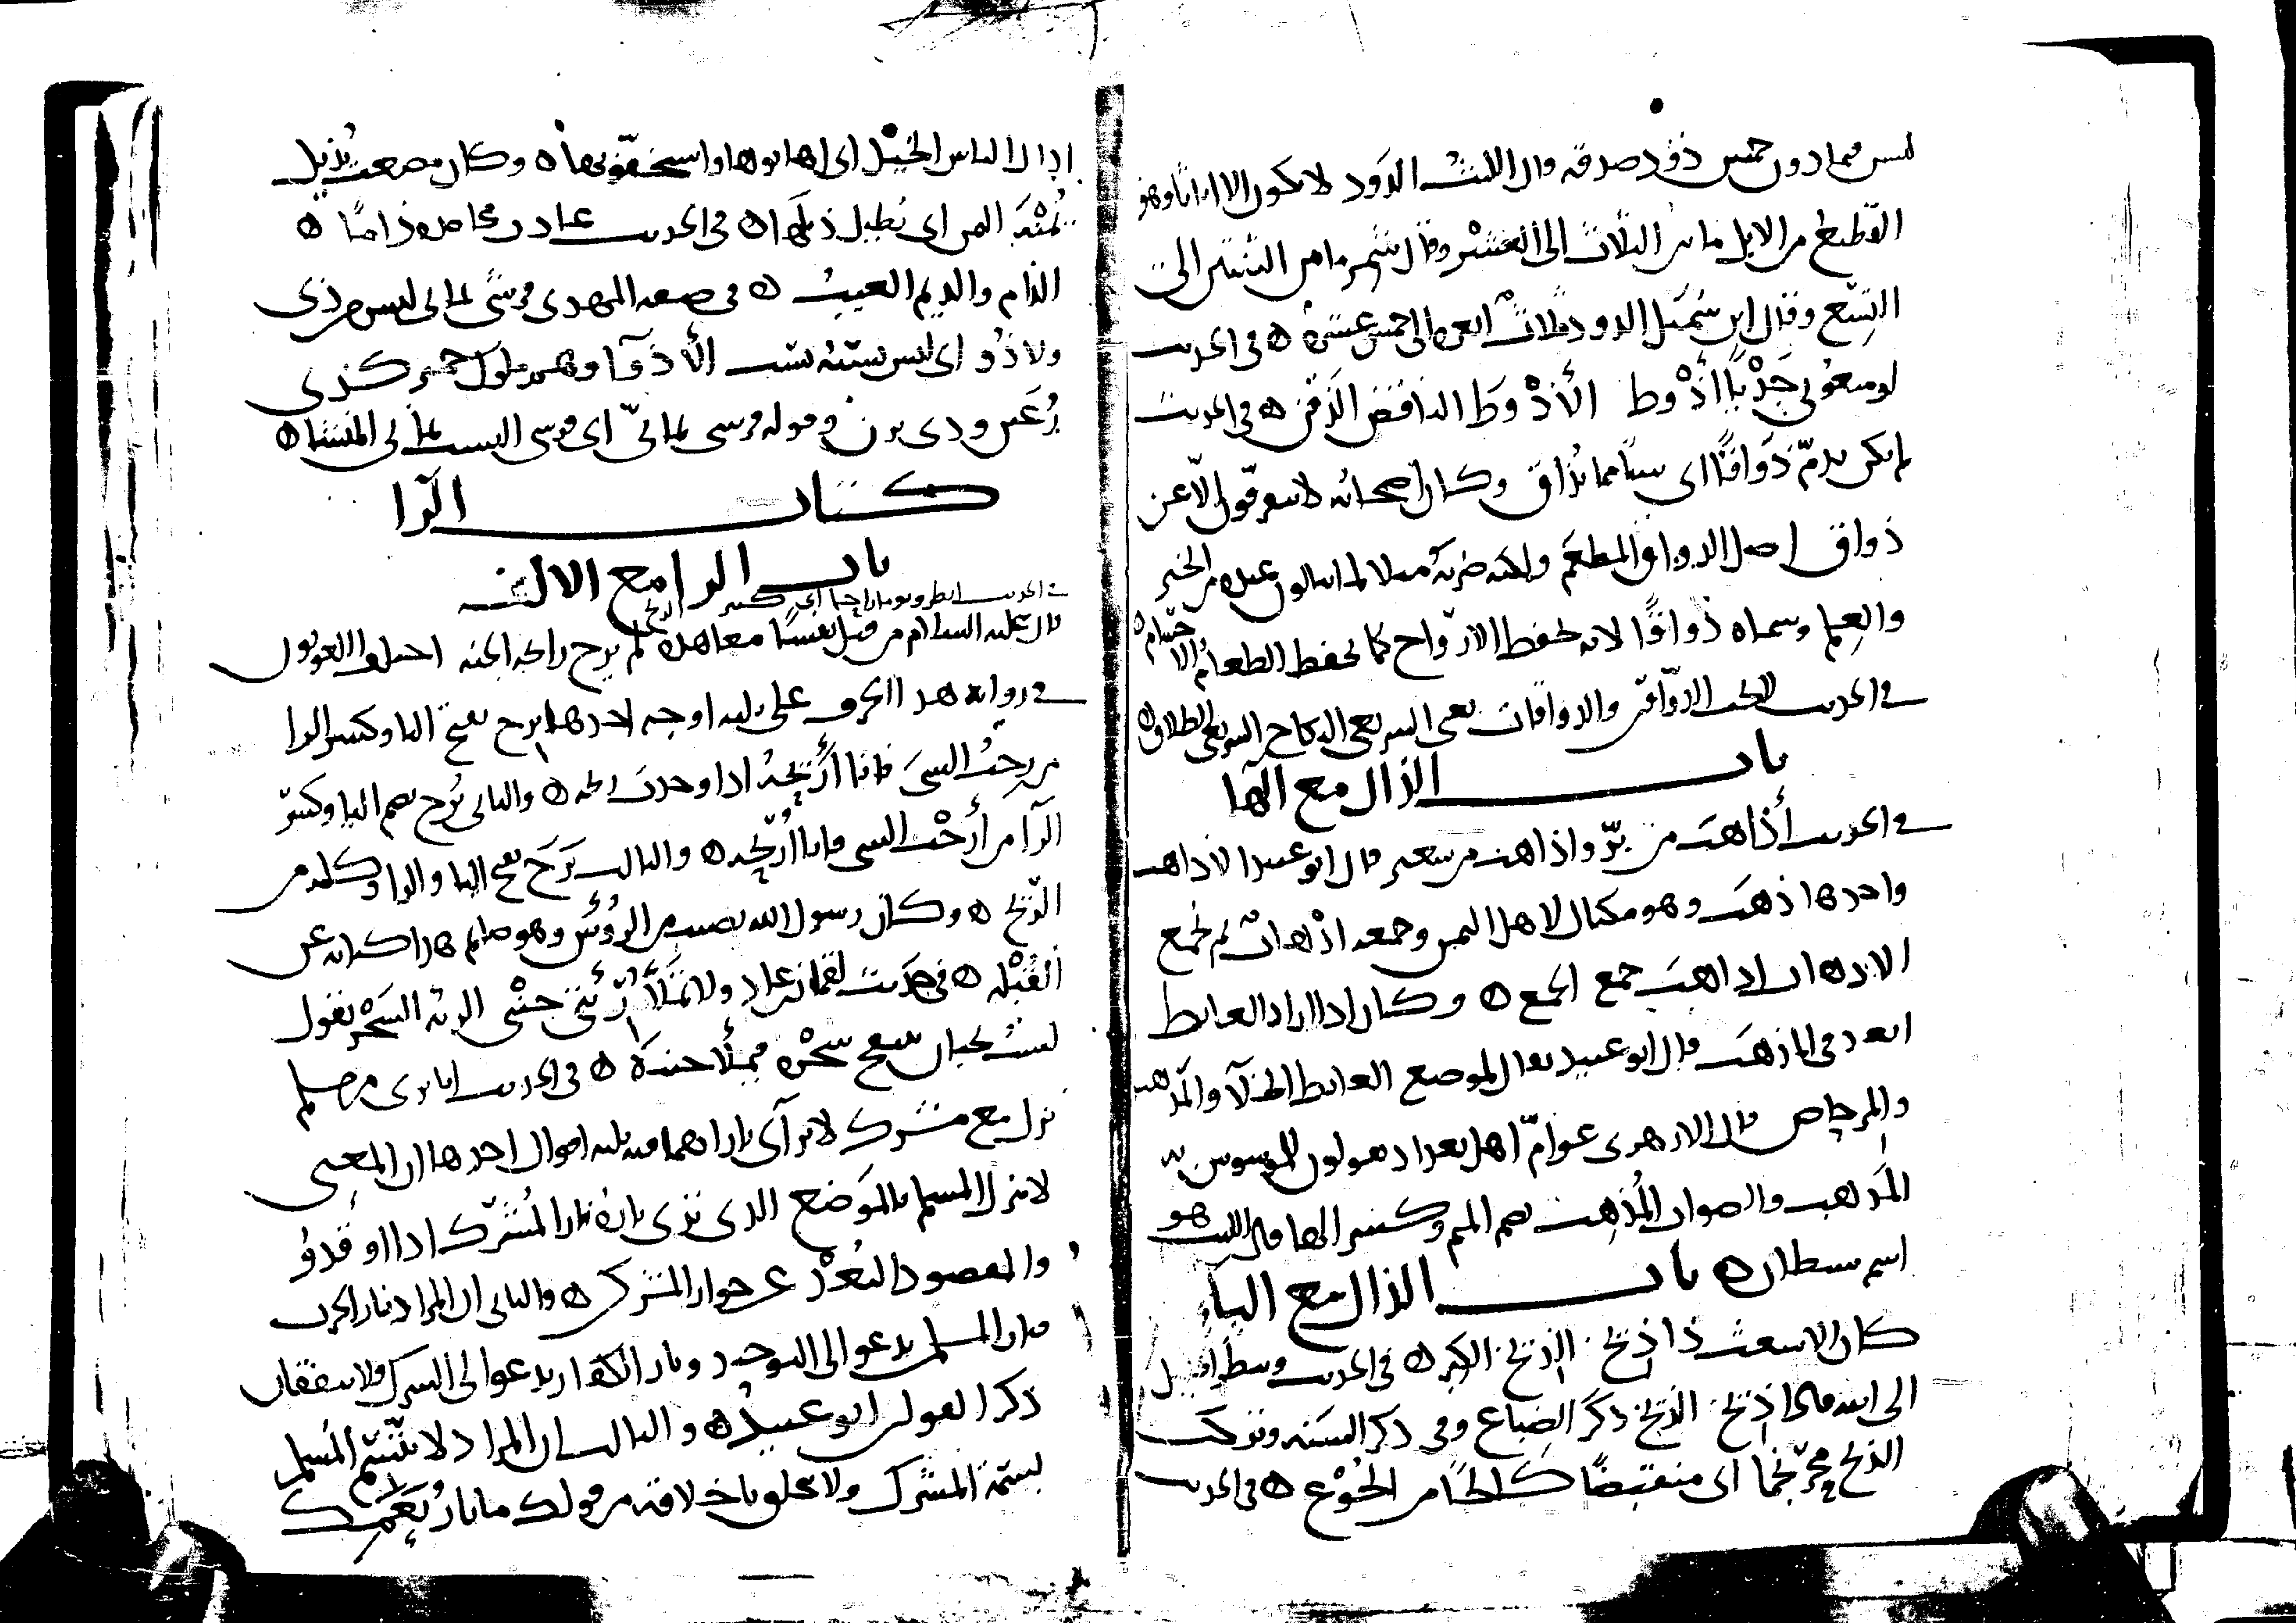 ليس فيما دون خمس ذود صدقة قال الليث الذود لا يكون الا اناثا وهو
القطيع من الابل ما بين الثلاث الى العشر وقال شمر ما بين الثنتين الى
التسع وقال ابن شميل الذود ثلاث ابعرة الى خمس عشرة ه في الحديث
لو منعوني جديا أذوط الأذوط الناقص الذقن ه في الحديث
لم يكن يذم ذواقا اي شيئا مما يذاق وكان اصحابه لا يتفرقون الا عن
ذواق اصل الذواق المطعم ولكنه ضربه مثلا لما ينالون عنده من الخير
والعلم وسماه ذواقا لانه يحفظ الارواح كما يحفظ الطعام الاجسام ه
في الحديث الذواقين والذواقات يعني السريعي النكاح السريعي الطلاق ه
باب الذال مع الها
في الحديث أذاهب من بر واذاهب من شعير قال ابو عبيد الاذاهب
واحدها ذهب وهو مكيال لاهل اليمن وجمعه اذهاب ثم تجمع
الاذهاب اذاهب جمع الجمع ه وكان اذا اراد الغايط
ابعد في المذهب قال ابو عبيد يقال لموضع الغايط الخلا والمذهب
والمرحاض قال الازهري عوام اهل بغداد يقولون للموسوس به
المذهب والصواب المذهب بضم الميم وكسر الها قال الليث هو
اسم شيطان ه باب الذال مع الياء
كان الاشعث ذا ذيخ الذيخ الكبر ه في الحديث وينظر الخليل
الى ابيه فاذا ذيخ الذيخ ذكر الضباع وفي ذكر السنة وتركت
الذيخ محرنجما اي منقبضا كالحا من الجوع ه في الحديث
اذال الناس الخيل اي اهانوها واستخفوا بها ه وكان مصعب يذيل
يمنة اليمن اي يطيل ذيلها ه في الحديث عادت محامده ذاما ه
الذام والذيم العيب ه في صفة المهدي قرشي يماني ليس من ذي
ولا ذو اي ليس نسبه نسب الأذوا وهم ملوك حمير كذي
رعين وذي يزن وقوله قرشي يماني اي قرشي النسب يماني المنشا ه
كتاب الرا
باب الرا مع الالف
قال عليه السلام من قتل نفسا معاهدة لم يرح رائحة الجنة اختلف اللغويون
في رواية هذا الحرف على ثلثة اوجه احدها يرح بفتح اليا وكسر الرا
من رحت الشي فانا أريحه اذا وجدت ريحه ه والثاني يرح بضم اليا وكسر
الرا من أرحت الشي فانا أريحه ه والثالث يرح بفتح اليا والرا وكله من
الريح ه وكان رسول الله يصيب من الرؤس وهو صايم هذا كناية عن
القبلة ه في حديث لقمان بن عاد ولا تملأ رئتي جنبي الرئة السحر يقول
لست بجبان ينتفخ سحره فيملأ جنبه ه في الحديث انا بري من مسلم
نزل مع مشرك لا تراآى ناراهما فيه ثلثة اقوال احدها ان المعنى
لا ينزل المسلم بالموضع الذي ترى ناره نار المشرك اذا اوقد
والمقصود البعد عن جوار المشركين ه والثاني ان المراد نار الحرب
فنار المسلم يدعو الى التوحيد ونار الكفار يدعو الى الشرك ولا يتفقان
ذكر القولين ابو عبيد ه والثالث ان المراد لا يتسم المسلم
بسمة المشرك ولا يتخلق باخلاقه من قولك ما نار نعمك